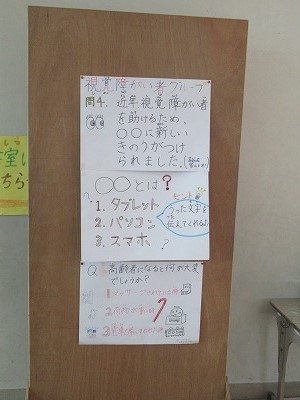 視覚障がい者グループ
問4. 近年視覚障がい者
を助けるため、
○○に新しい
きのうがつけ
られました。
○○とは?
1. タブレット
2. パソコン
3. スマホ
?
ヒント
うった文字を
伝えてくれるよ
Q. 高齢者になると何が大変
でしょうか?
1
2
3
室は
ちら